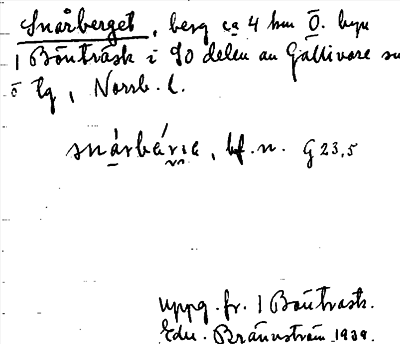 Snårberget, berg ca 4 km Ö. byn
1 Bönträsk i SO delen av Gällivare sn
o tg, Norrb. l.
snárbárıe, bf. n. G 23,5
uppg. fr. 1 Bönträsk.
Edv. Brännström 1939.